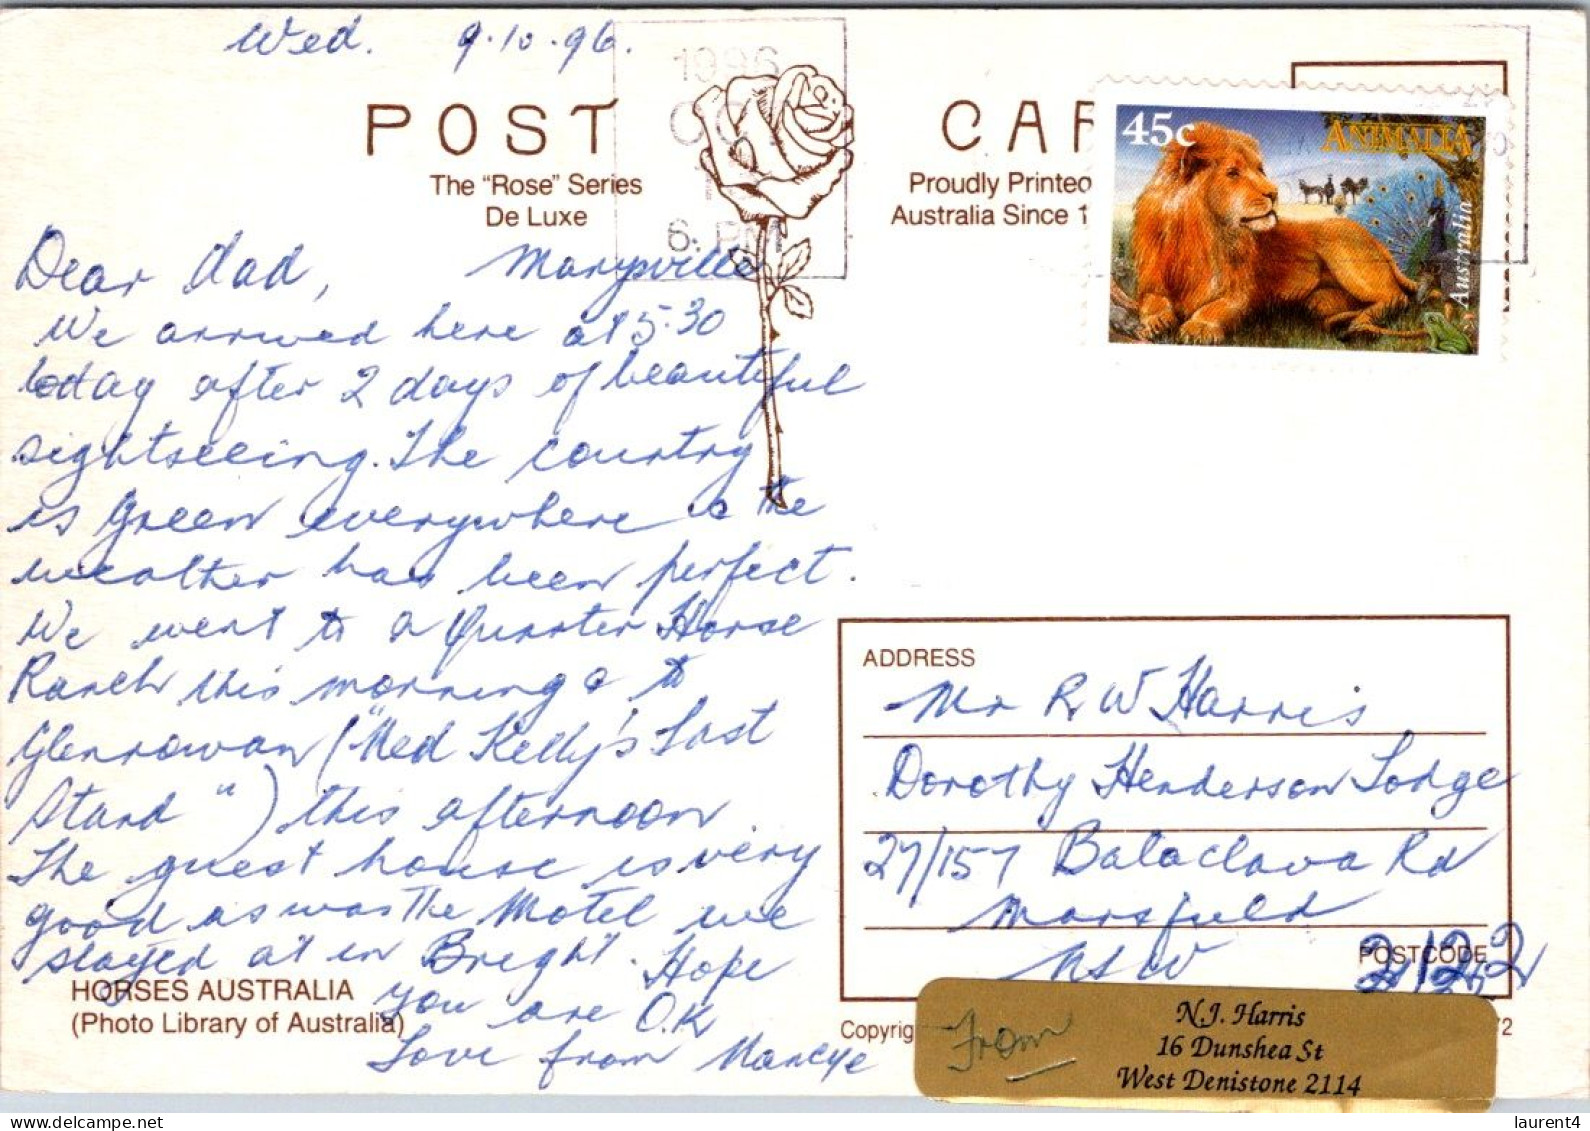 Wed. 9.10.96.
1996
OCT
6. PM
POST CAR
The "Rose" Series
De Luxe
Proudly Printed
Australia Since 1
45c
ANIMALIA
Australia
Dear Dad, Marysville
We arrived here at 5.30
today after 2 days of beautiful
sightseeing. The country
is green everywhere & the
weather has been perfect.
We went to a Quarter Horse
Ranch this morning & to
Glenrowan ("Ned Kelly's Last
Stand") this afternoon
The guest house is very
good as was the Motel we
stayed at in Bright. Hope
you are O.K
Love from Nancye
HORSES AUSTRALIA
(Photo Library of Australia)
ADDRESS
Mr R W Harris
Dorothy Henderson Lodge
27/157 Balaclava Rd
Marsfield
NSW
POSTCODE 2122
Copyrig
72
From
N.J. Harris
16 Dunshea St
West Denistone 2114
laurent4